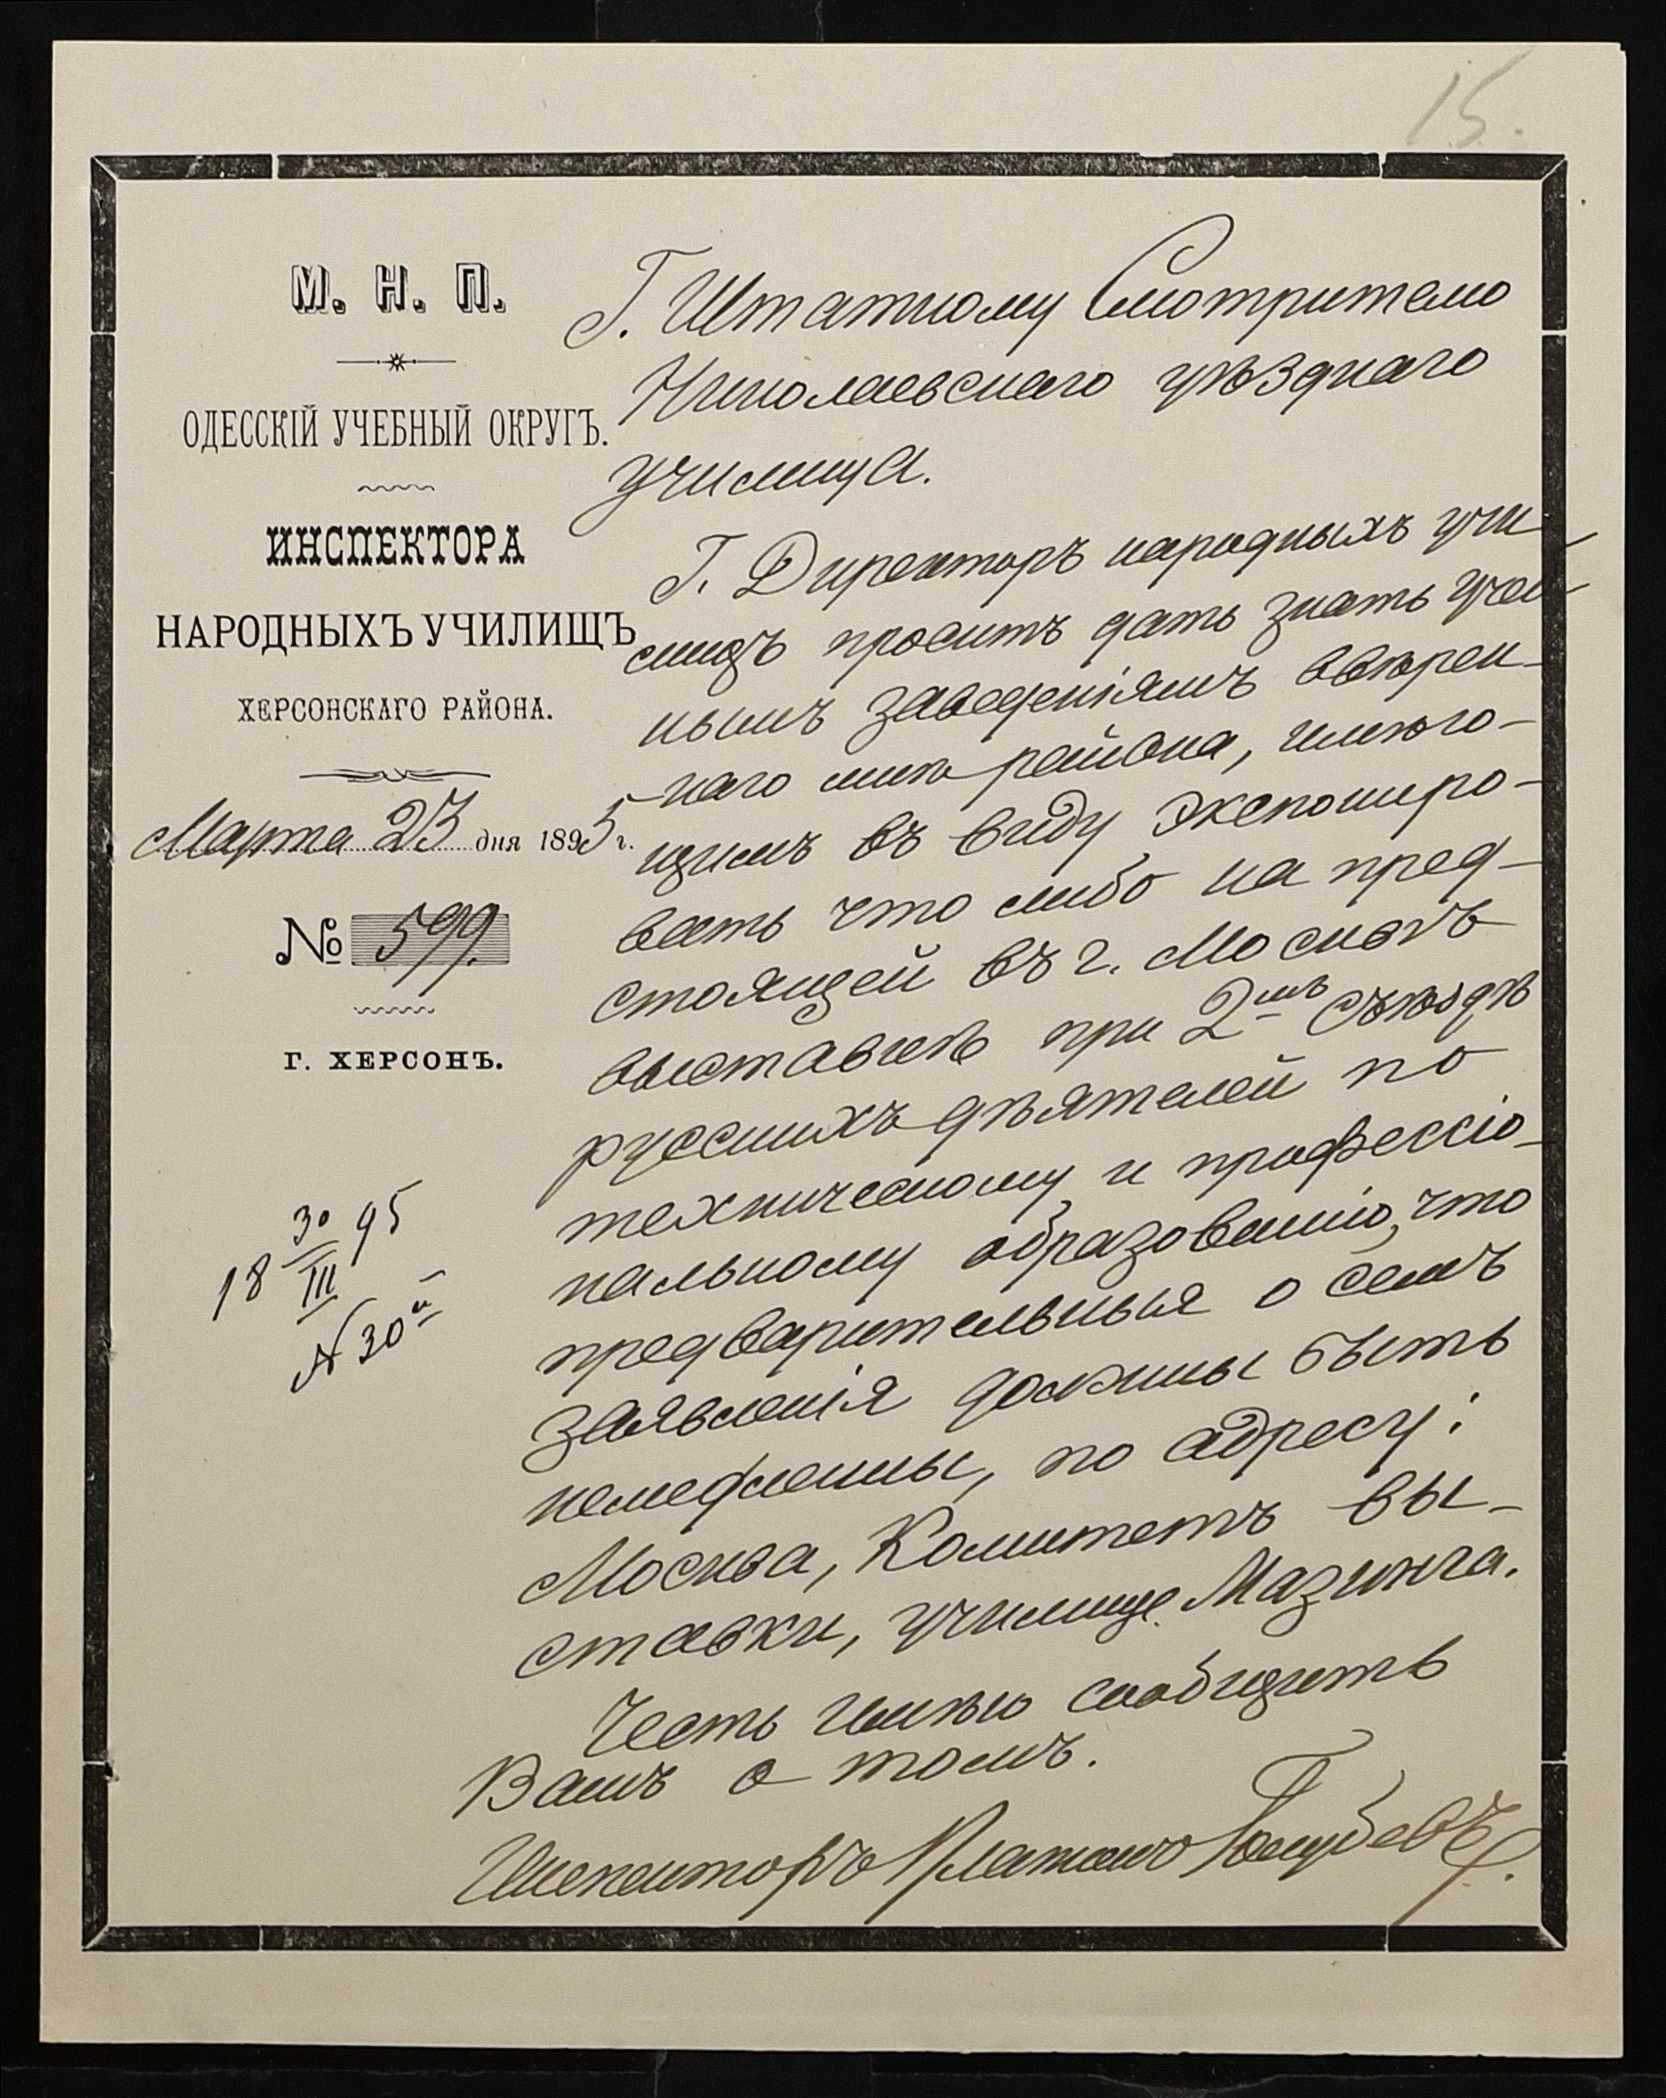 15.
М. Н. П.
ОДЕССКІЙ УЧЕБНЫЙ ОКРУГЪ.
ИНСПЕКТОРА
НАРОДНЫХЪ УЧИЛИЩЪ
ХЕРСОНСКАГО РАЙОНА.
Марта 23 дня 1895 г.
№ 599.
Г. ХЕРСОНЪ.
18 30/III 95
N 30й
Г. Штатному Смотрителю
Николаевскаго уѣзднаго
училища.
Г. Директоръ народныхъ учи-
лищъ проситъ дать знать учеб-
нымъ заведеніямъ ввѣрен-
наго мнѣ района, имѣю-
щимъ въ виду экспониро-
вать что либо на пред-
стоящей въ г. Москвѣ
выставкѣ при 2мъ съѣздѣ
русскихъ дѣятелей по
техническому и профессіо-
нальному образованію, что
предварительныя о семъ
заявленія должны быть
немедленны, по адресу:
Москва, Комитетъ вы-
ставки, училище Мазинга.
Честь имѣю сообщить
Вамъ о томъ.
Инспекторъ Платонъ Голубевъ